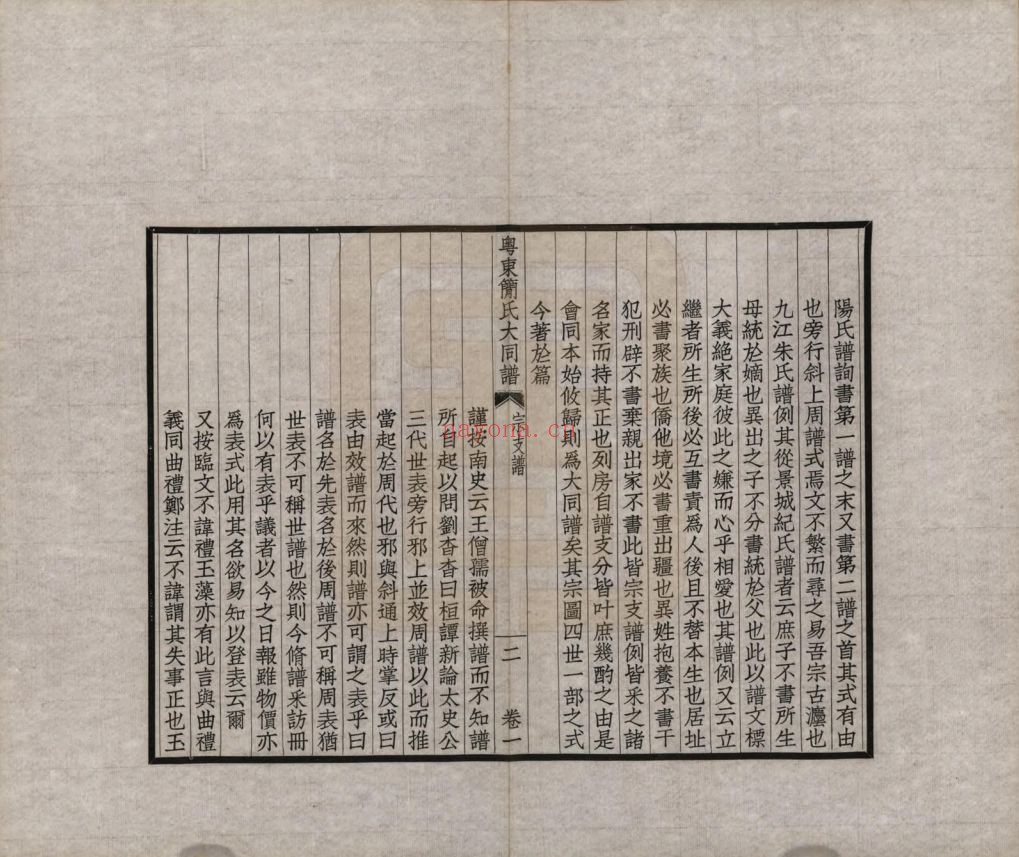 陽氏譜詢書第一譜之末又書第二譜之首其式有由
也旁行斜上周譜式焉文不繁而尋之易吾宗古灋也
九江朱氏譜例其從景城紀氏譜者云庶子不書所生
母統於嫡也異出之子不分書統於父也此以譜文標
大義絕家庭彼此之嫌而心乎相愛也其譜例又云立
繼者所生所後必互書責爲人後且不替本生也居址
必書聚族也僑他境必書重出疆也異姓抱養不書干
犯刑辟不書棄親出家不書此皆宗支譜例皆采之諸
名家而持其正也列房自譜支分皆叶庶幾酌之由是
會同本始攸歸則爲大同譜矣其宗圖四世一部之式
今著於篇
粵東簡氏大同譜 宗支譜 二 卷一
謹按南史云王僧孺被命撰譜而不知譜
所自起以問劉杳杳曰桓譚新論太史公
三代世表旁行邪上並效周譜以此而推
當起於周代也邪與斜通上時掌反或曰
表由效譜而來然則譜亦可謂之表乎曰
譜名於先表名於後周譜不可稱周表猶
世表不可稱世譜也然則今脩譜采訪冊
何以有表乎議者以今之日報雖物價亦
爲表式此用其名欲易知以登表云爾
又按臨文不諱禮玉藻亦有此言與曲禮
義同曲禮鄭注云不諱謂其失事正也玉
gayona.cn